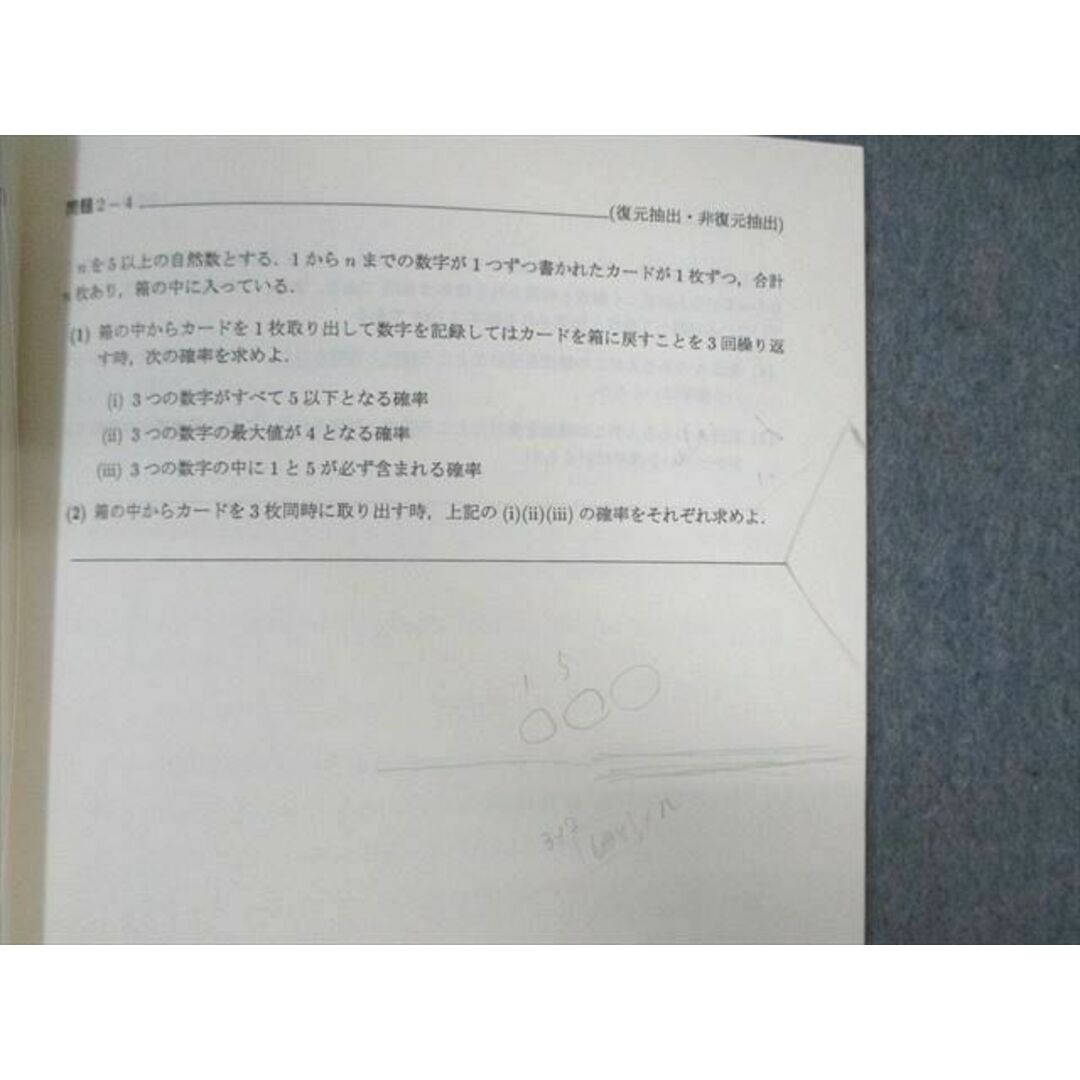 問題2－4
(復元抽出・非復元抽出)
nを5以上の自然数とする．1からnまでの数字が1つずつ書かれたカードが1枚ずつ，合計
n枚あり，箱の中に入っている．
(1) 箱の中からカードを1枚取り出して数字を記録してはカードを箱に戻すことを3回繰り返
す時，次の確率を求めよ．
(i) 3つの数字がすべて5以下となる確率
(ii) 3つの数字の最大値が4となる確率
(iii) 3つの数字の中に1と5が必ず含まれる確率
(2) 箱の中からカードを3枚同時に取り出す時，上記の(i)(ii)(iii)の確率をそれぞれ求めよ．
1 5